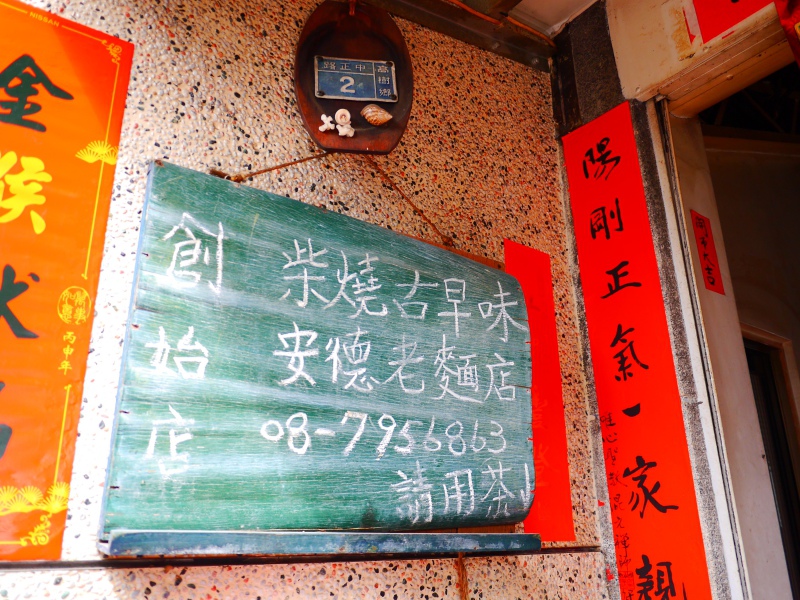 NISSAN
金猴
丙申年
高樹鄉
中正路
2
創始店
柴燒古早味
安德老麵店
08-7956863
請用茶
陽剛正氣一家親